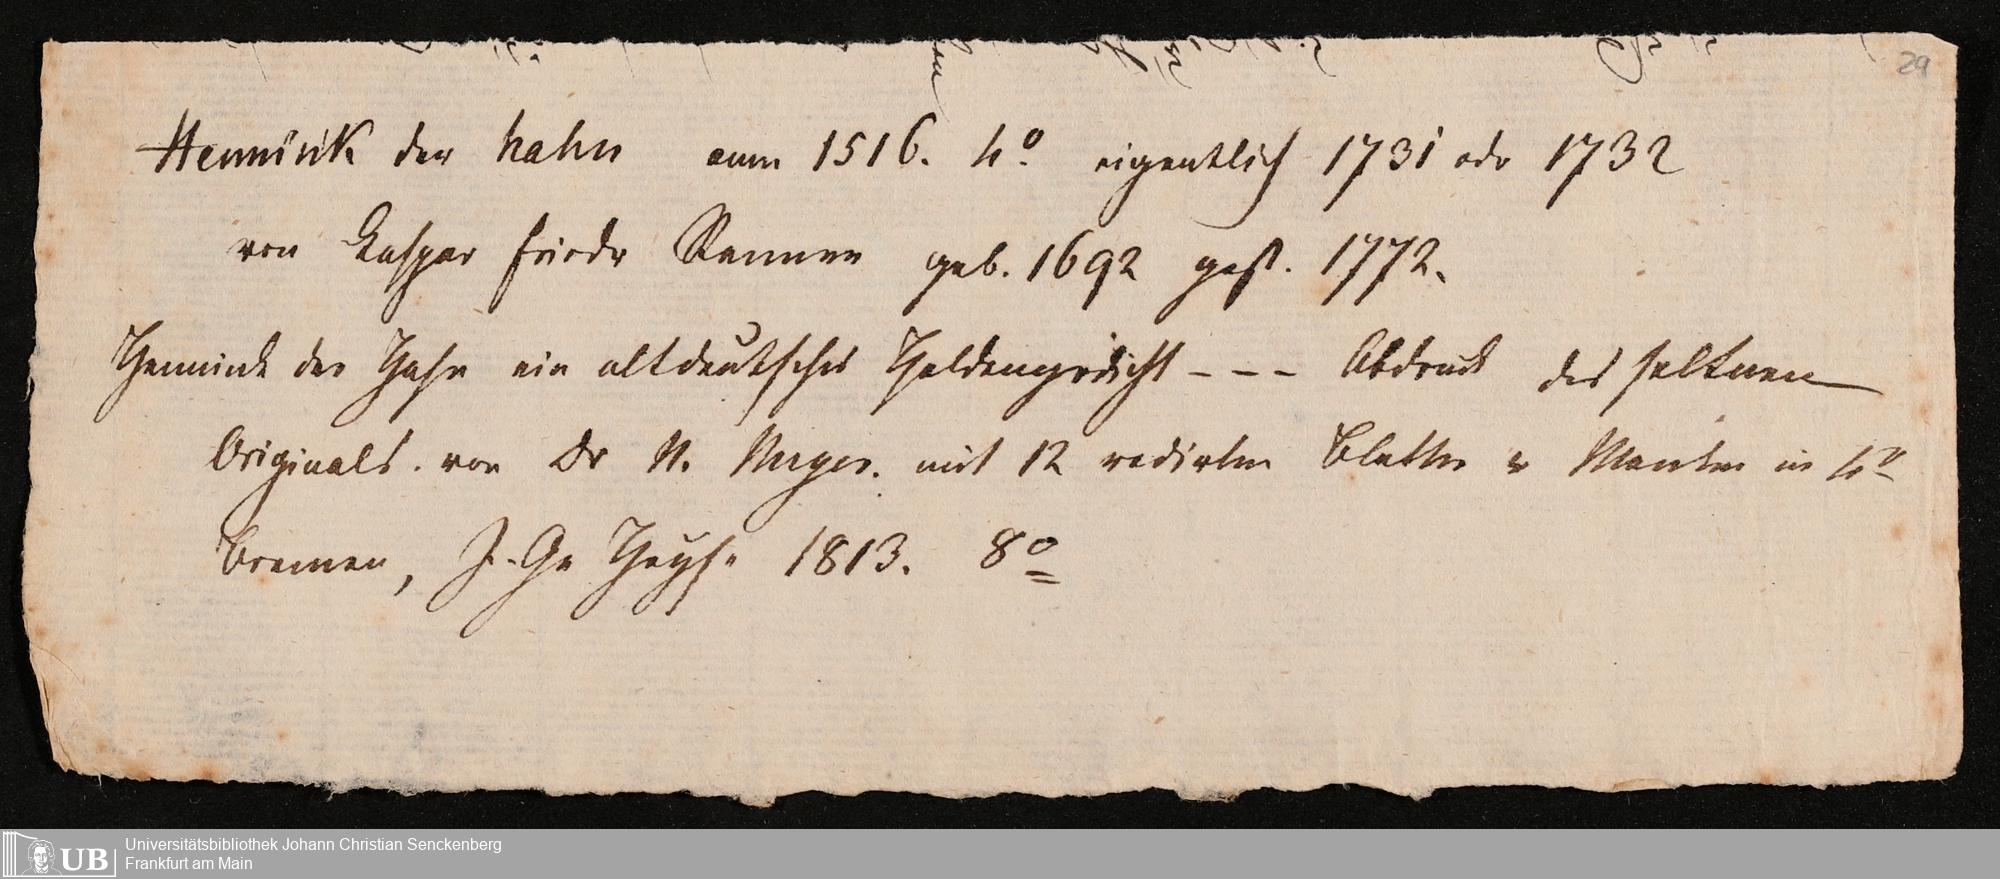 29
Henninik der hahn anm 1516. 4º. eigentlich 1731 odr 1732
von Caspar Friedr Renner geb. 1692 gest. 1772.
Hennink der Hahn ein altdeutsches Heldengedicht - - - Abdruck des seltnen
Originals. von Dr N. Meyer. mit 12 radirten Blatter v Menken in 4º
Bremen, J. Ge Heyse 1813. 8º
UB
Universitätsbibliothek Johann Christian Senckenberg
Frankfurt am Main